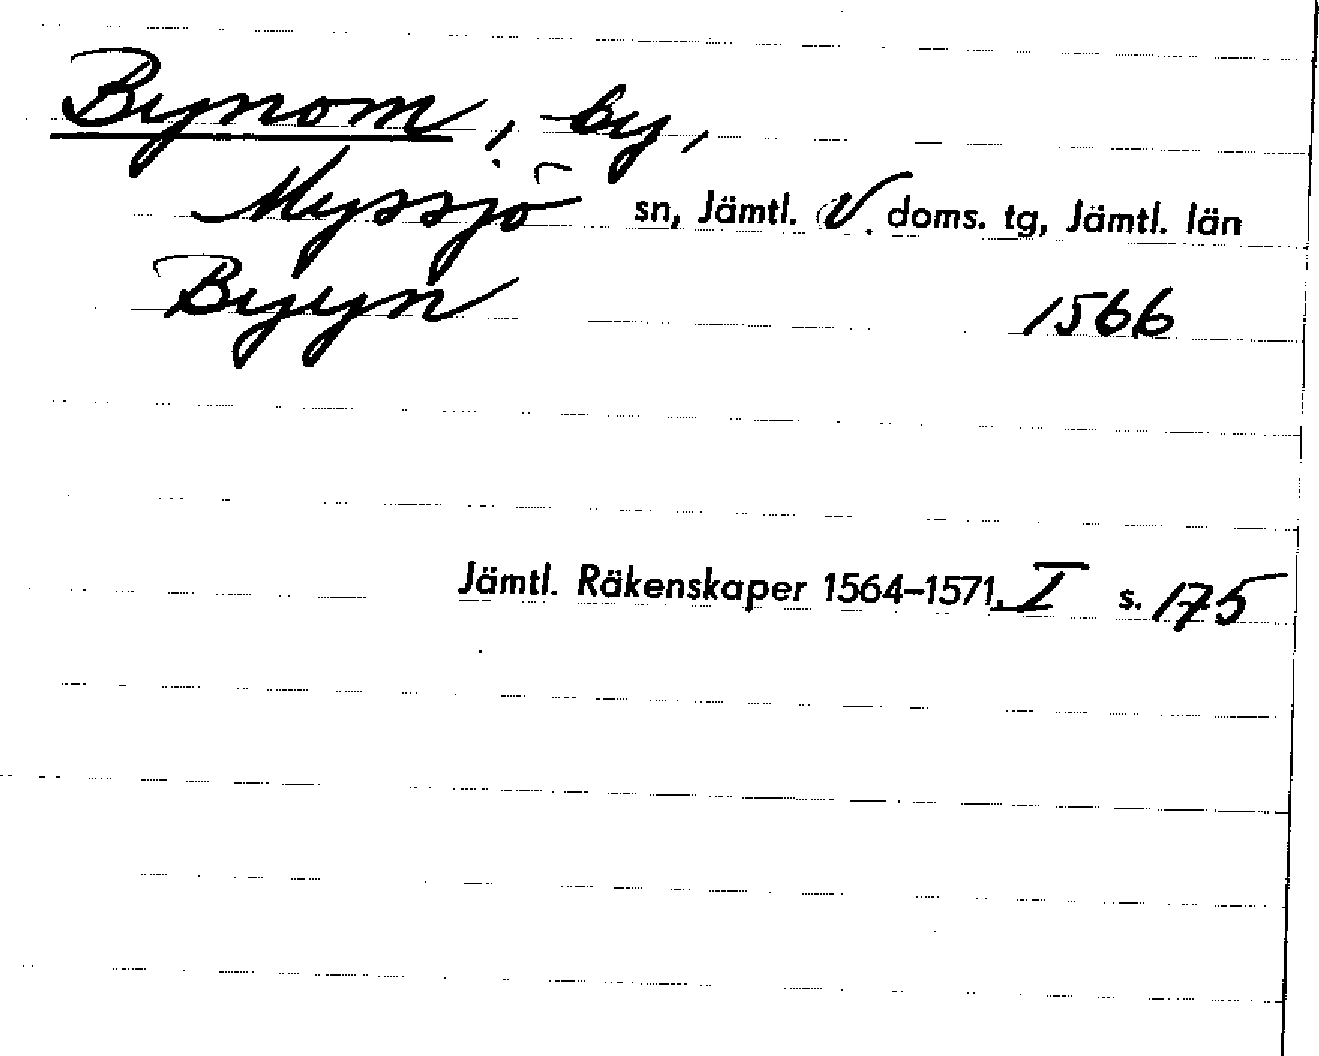 Bynom, by,
Myssjö sn, Jämtl. V. doms. tg, Jämtl. län
Byyn 1566
Jämtl. Räkenskaper 1564–1571, I s. 175